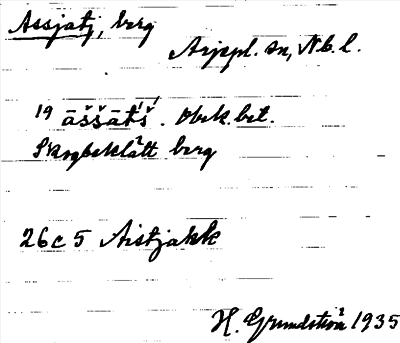 Assjatj, berg
Arjepl. sn, Nb. l.
19 āššāt́š́. Obek. bet.
Skogbeklätt berg
26c5 Aistjakk
H. Grundström 1935